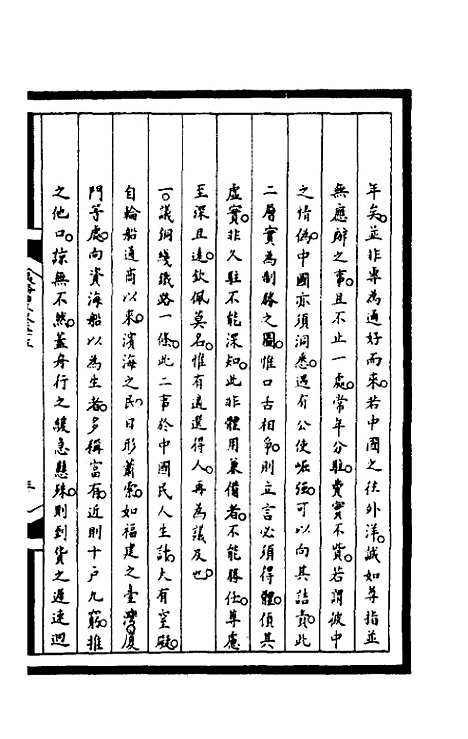 年矣。並非專為通好而來。若中國之往外洋。誠如尊指並
無應辦之事。且不止一處。常年分駐。費實不貲。若謂彼中
之情偽。中國亦須洞悉。遇有公使崛强。可以向其詰責。此
二層實為制勝之圖。惟口舌相爭。則立言必須得體。偵其
虛實。非久駐不能深知。此非體用兼備者。不能勝任。尊慮
至深且遠。欽佩莫名。惟有遴選得人。再為議及也。
一。議銅綫鐵路一條。此二事於中國民人生計。大有窒礙。
自輪船通商以來。濱海之民。日形蕭索。如福建之臺灣。厦
門等處。向資海船以為生者。多稱富有。近則十户九窮。推
之他口。諒無不然。蓋舟行之緩急懸殊。則到貨之遲速迥